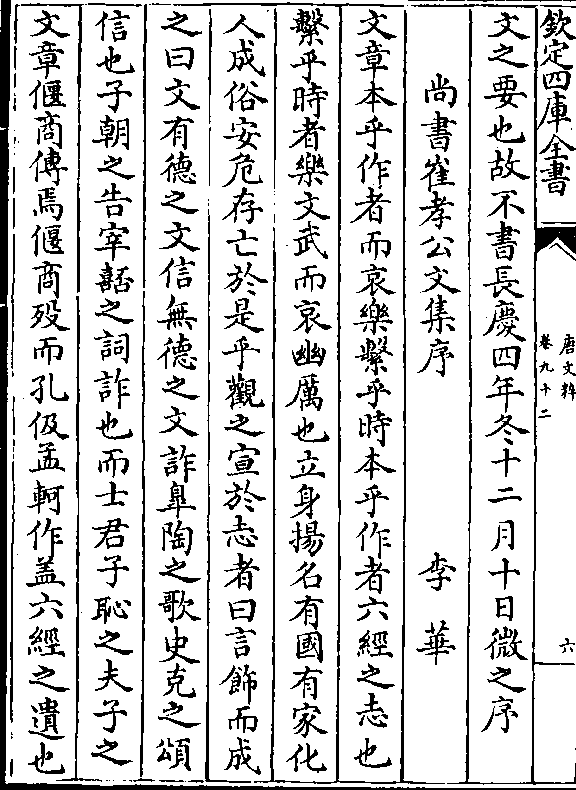 欽定四庫全書
唐文粹
卷九十二
六
文之要也故不書長慶四年冬十二月十日微之序
尚書崔孝公文集序 李華
文章本乎作者而哀樂繫乎時本乎作者六經之志也
繫乎時者樂文武而哀幽厲也立身揚名有國有家化
人成俗安危存亡於是乎觀之宣於志者曰言飾而成
之曰文有德之文信無德之文詐臯陶之歌史克之頌
信也子朝之告宰嚭之詞詐也而士君子恥之夫子之
文章偃商傳焉偃商歿而孔伋孟軻作盖六經之遺也